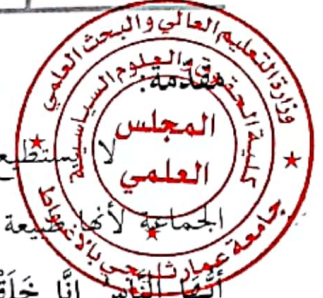 وزارة التعليم العالي والبحث العلمي
كلية الحقوق والعلوم السياسية
المجلس
العلمي
جامعة عمار ثليجي بالأغواط
مقدمة:
لا يستطيع
الجماعية لأنها طبيعة
أيها الناس إنا خلق